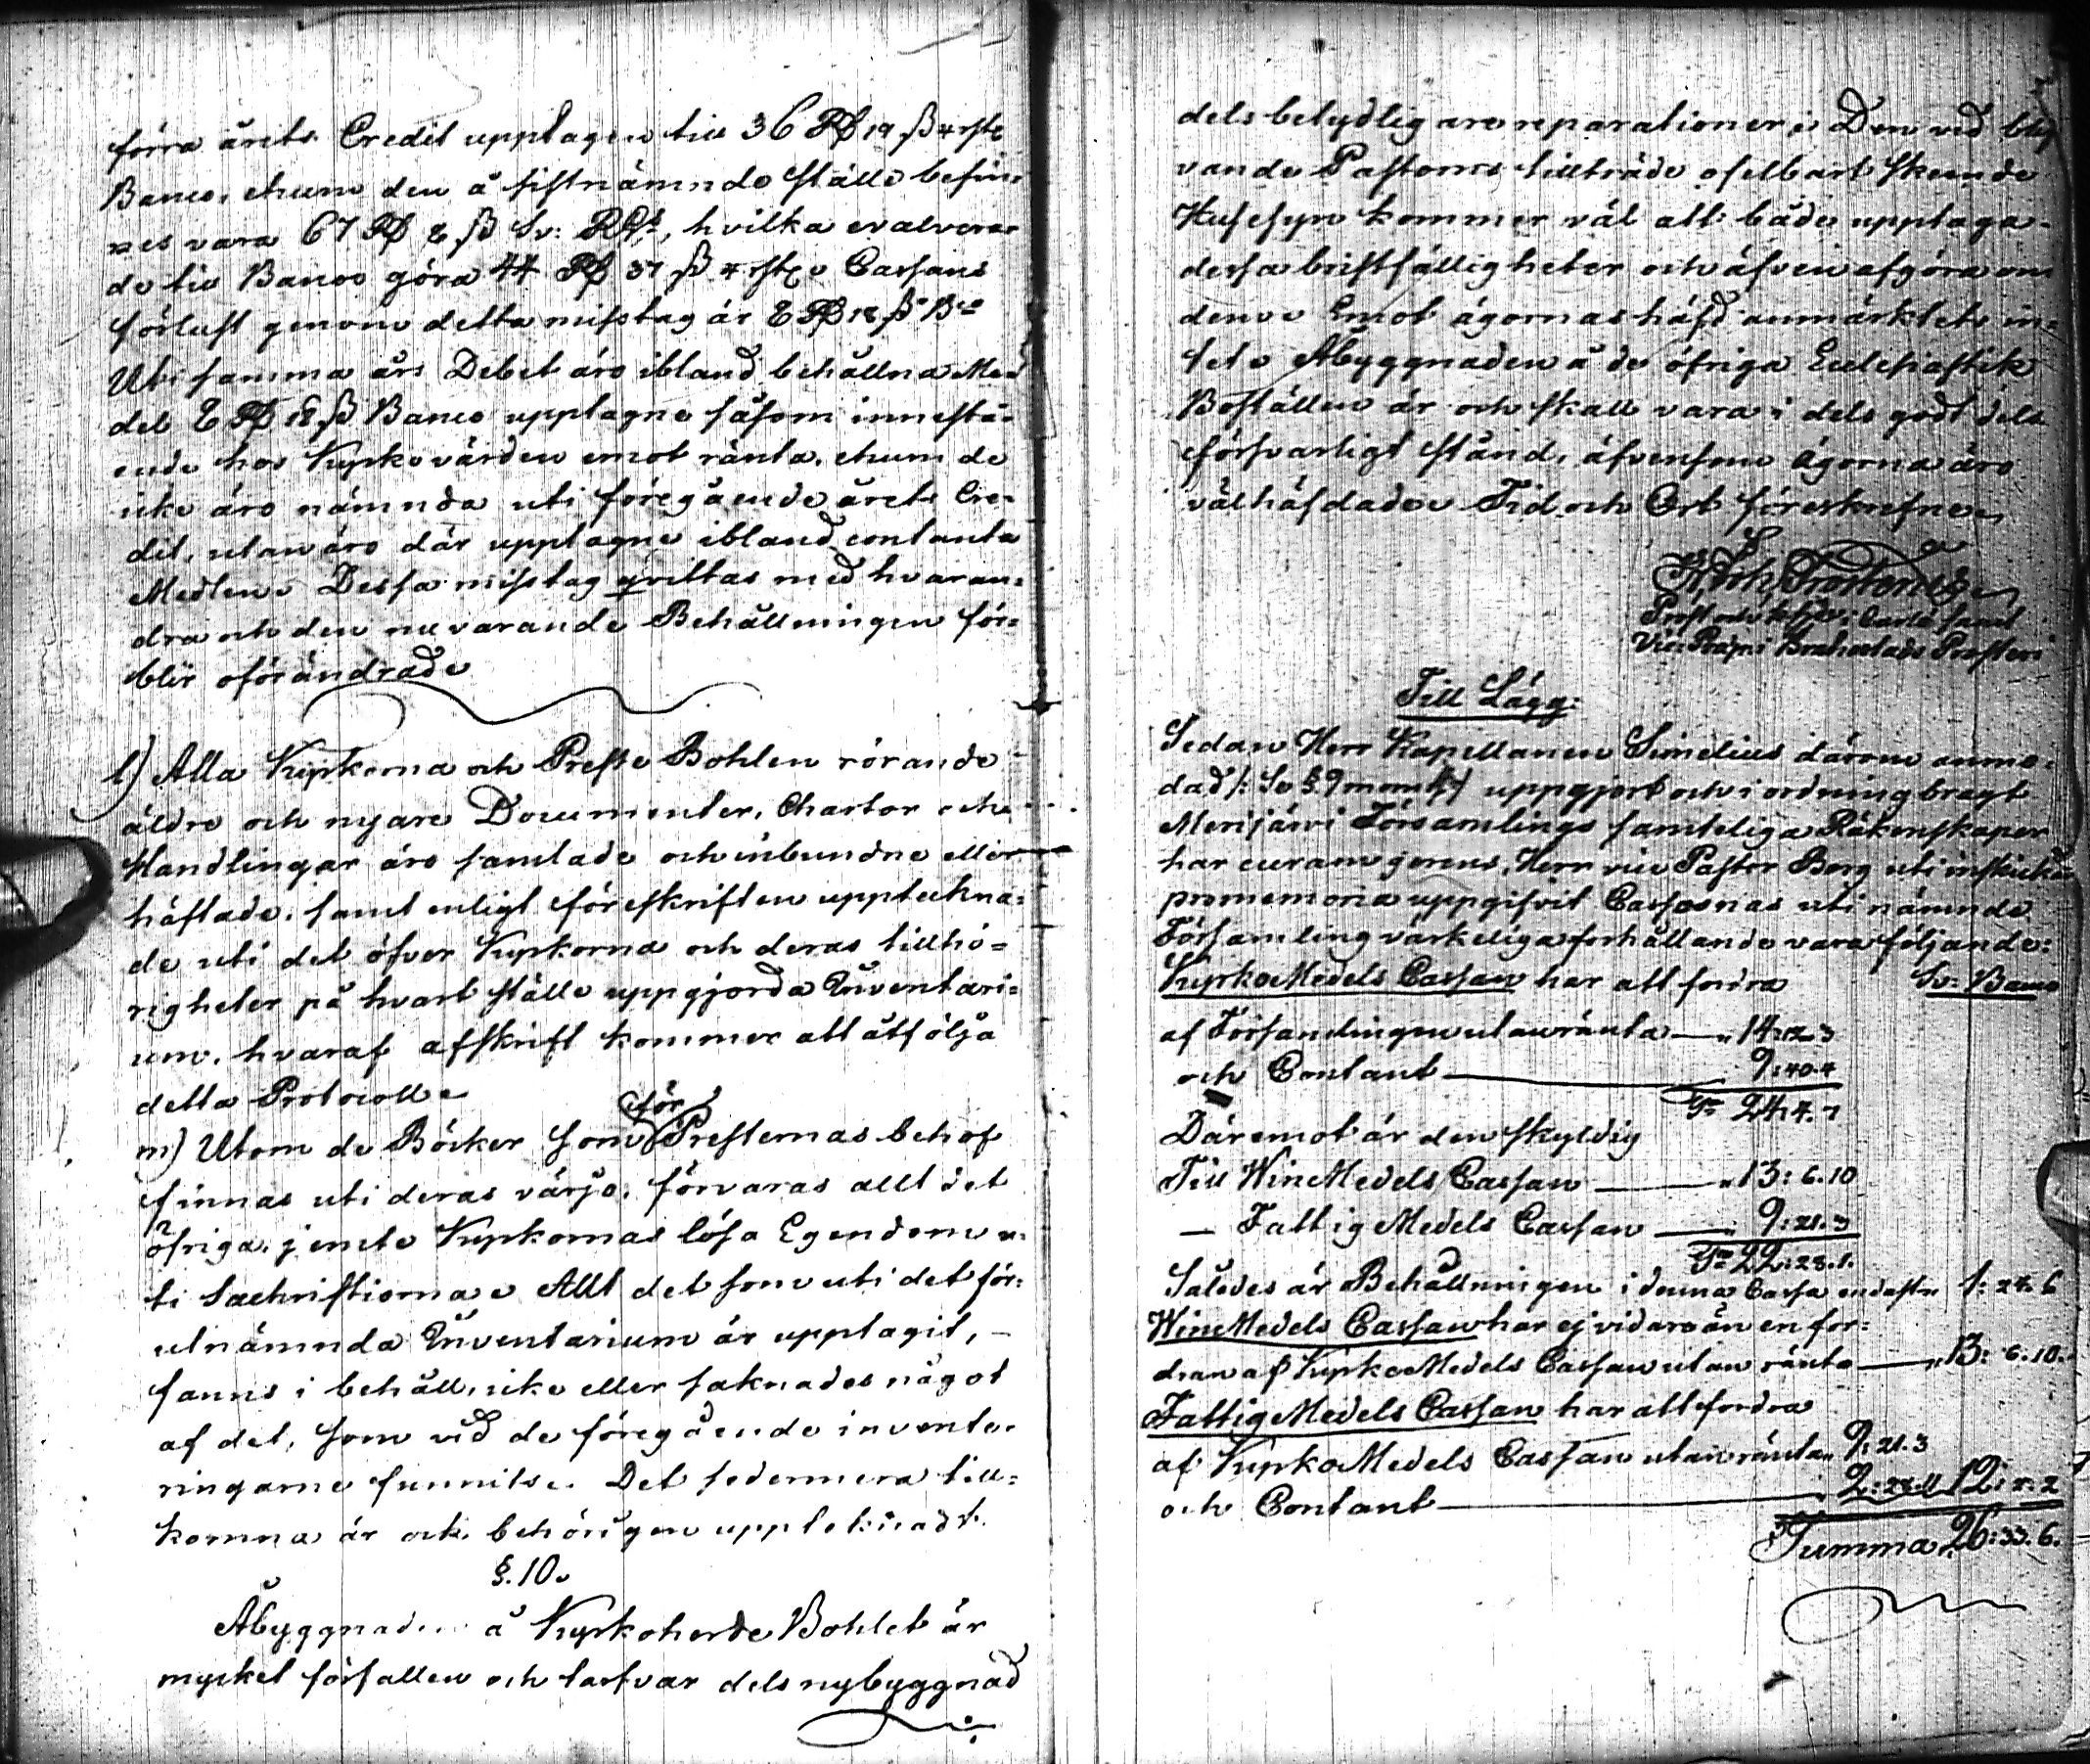 förra årets Credit upptagen till 36 Rd 19 ß 4 rst
Banco, ehuru den å sistnämnde ställe befin-
nes vara 67 Rd 8 ß Sv: Rgs, hvilka evalvera-
de till Banco göra 44 Rd 37 ß 4 rst. Cassans
förlust genom detta misstag är 8 Rd 18 ß Bco
Uti samma års Debet äro ibland behållna Me-
del 8 Rd 18 ß Banco upptagne såsom innestå-
ende hos Kyrkovärden emot ränta, ehuru de
icke äro nämnda uti föregående årets Cre-
dit, utan äro där upptagne ibland contanta
Medlen. Dessa misstag qvittas med hvaran-
dra och den nuvarande Behållningen för-
blir oförändrad.
l) Alla Kyrkorna och Preste Bohlen rörande
äldre och nyare Documenter, Chartor och
Handlingar äro samlade och inbundne eller
häftade, samt enligt föreskriften uppteckna-
de uti det öfver Kyrkorna och deras tillhö-
righeter på hvart ställe uppgjorda Inventari-
um, hvaraf afskrift kommer att åtfölja
detta Protocoll.
m) Utom de Böcker som för Presternas behof
finnas uti deras värjo, förvaras allt det
öfriga, jemte Kyrkornas lösa Egendom u-
ti Sachristiorna. Allt det som uti det för-
utnämnda Inventarium är upptagit,
fanns i behåll, icke eller saknades något
af det, som vid de föregående invente-
ringarne funnits. Det sedermera till-
komna är ock behörigen upptecknadt.
§. 10.
Åbyggnaden å Kyrkoherde Bohlet är
mycket förfallen och tarfvar dels nybyggnad
dels betydligare reparationer. Den vid bly-
vande Pastorns tillträde ofelbart skeende
Husesyn kommer väl att både upptaga
dessa bristfälligheter och äfven afgöra om
dem. Emot ägornas häfd anmärktets in-
tet. Åbyggnaden å de öfriga Ecclesiastik
Boställen är och skall vara i dels godt dels
försvarligt stånd, äfvensom ägorna äro
välhäfdade. Tid och Ort föreskrefne.
Vic: Præp: i Brahestads Prosteri
Till Lägg:
Sedan Herr Kapellanen Simelius därom anmo-
dad /: Se §. 9 mom: :/ uppgjort och i ordning bragt
Merijärvi Församlings samteliga Räkenskaper
har curam gerens, Herr vice Pastor Borg uti inskickad
promemoria uppgifvit Cassornas uti nämnde
Församling värkeliga förhållande vara följande:
KyrkoMedels Cassan har att fordra Sv: Banco
af Församlingen utan ränta — " 14:12.3
och Contant — 9:40.4
Sr 24:4.7
Däremot är den skyldig
Till WineMedels Cassan — " 13: 6.10
— Fattig Medels Cassan — 9:21.3
Sr 22:28.1.
Således är Behållningen i denna Cassa endast " 1: 24. 6
WineMedels Cassan har ej vidare än en for-
dran af KyrkoMedels Cassan utan ränta — " 13: 6.10.
FattigMedels Cassan har att fordra
af KyrkoMedels Cassan utan ränta " 9: 21.3
och Contant — 2: 28.11 12: 2. 2
Summa 26:33.6.